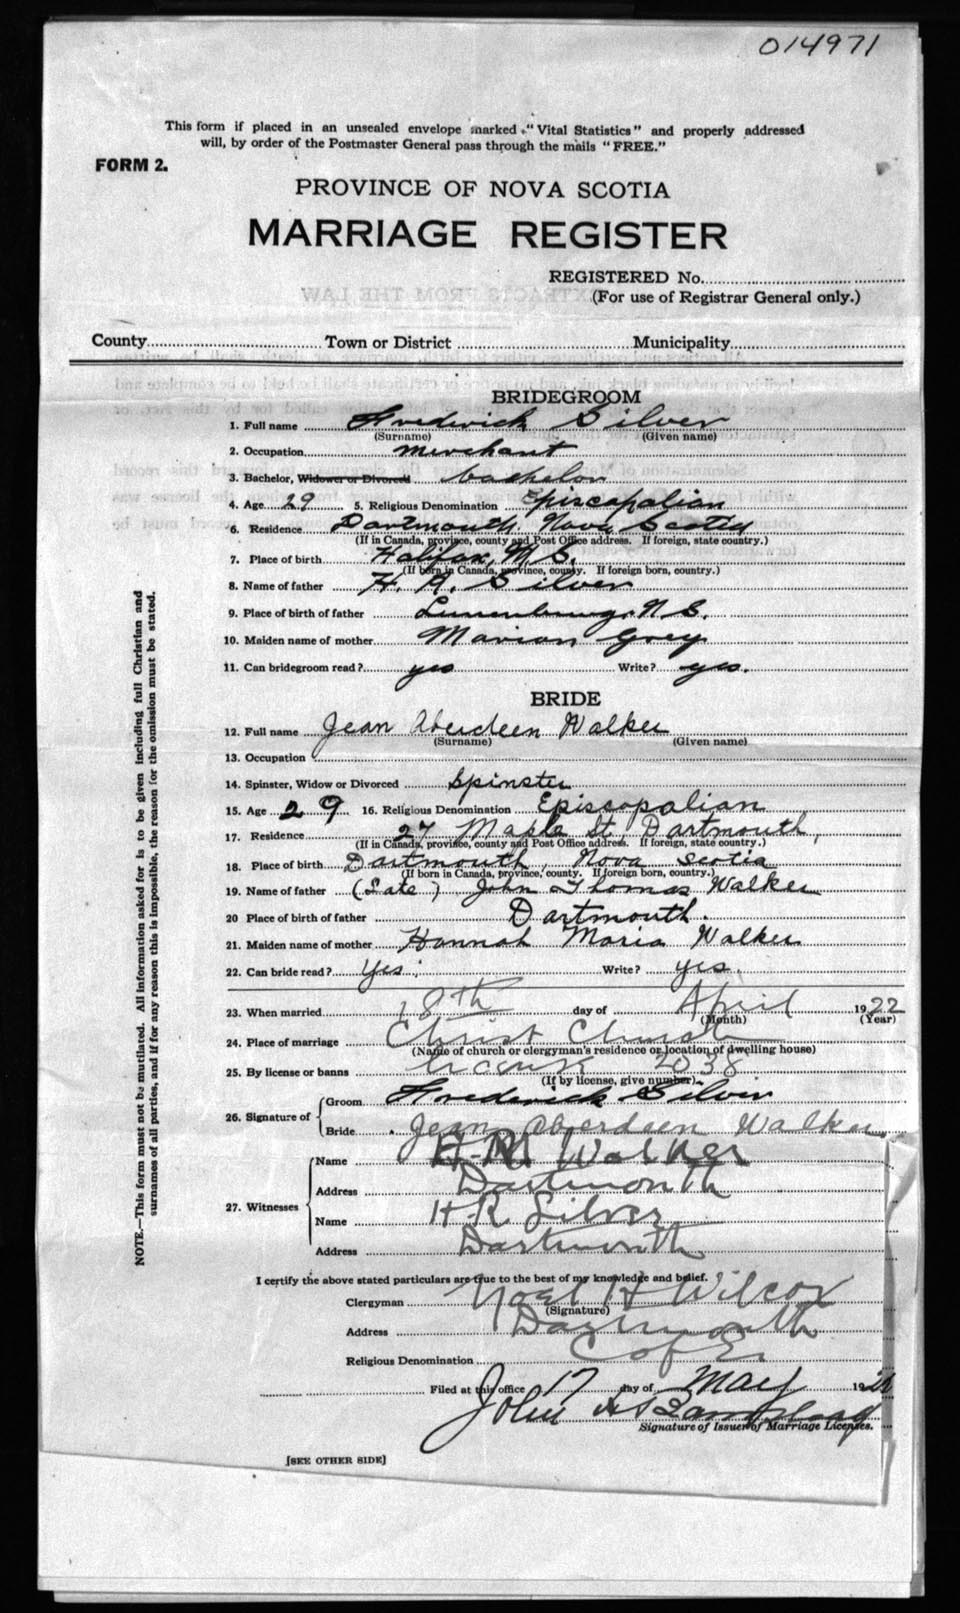 014971
This form if placed in an unsealed envelope marked "Vital Statistics" and properly addressed
will, by order of the Postmaster General pass through the mails "FREE."
FORM 2.
PROVINCE OF NOVA SCOTIA
MARRIAGE REGISTER
REGISTERED No.
(For use of Registrar General only.)
County Town or District Municipality
BRIDEGROOM
1. Full name Frederick Silver
(Surname) (Given name)
2. Occupation merchant
3. Bachelor, Widower or Divorced bachelor
4. Age 29 5. Religious Denomination Episcopalian
6. Residence Dartmouth, Nova Scotia
(If in Canada, province, county and Post Office address. If foreign, state country.)
7. Place of birth Halifax, N.S.
(If born in Canada, province, county. If foreign born, country.)
8. Name of father H. R. Silver
9. Place of birth of father Lunenburg, N.S.
10. Maiden name of mother Marian Grey
11. Can bridegroom read? yes Write? yes.
BRIDE
12. Full name Jean Aberdeen Walker
(Surname) (Given name)
13. Occupation
14. Spinster, Widow or Divorced Spinster
15. Age 29 16. Religious Denomination Episcopalian
17. Residence 27 Maple St. Dartmouth,
(If in Canada, province, county and Post Office address. If foreign, state country.)
18. Place of birth Dartmouth, Nova Scotia
(If born in Canada, province, county. If foreign born, country.)
19. Name of father (Late) John Thomas Walker
20 Place of birth of father Dartmouth.
21. Maiden name of mother Hannah Maria Walker
22. Can bride read? Yes. Write? yes.
23. When married 18th day of April 1922
(Month) (Year)
24. Place of marriage Christ Church
(Name of church or clergyman's residence or location of dwelling house)
25. By license or banns License 2038
(If by license, give number)
26. Signature of Groom Frederick Silver
Bride Jean Aberdeen Walker
27. Witnesses Name H.M. Walker
Address Dartmouth
Name H.R. Silver
Address Dartmouth
I certify the above stated particulars are true to the best of my knowledge and belief.
Clergyman Noel H Wilcox
(Signature)
Address Dartmouth
Religious Denomination C of E.
Filed at this office 17 day of May 192
John
Signature of Issuer of Marriage Licenses.
[SEE OTHER SIDE]
NOTE.—This form must not be mutilated. All information asked for is to be given including full Christian and
surnames of all parties, and if for any reason this is impossible, the reason for the omission must be stated.